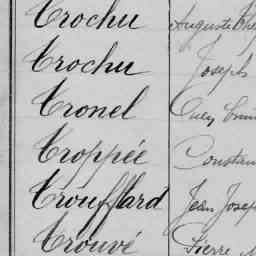 Trochu Auguste
Trochu Joseph
Tronel
Troppée Constan
Trouffard Jean Josep
Trouvé Pierre